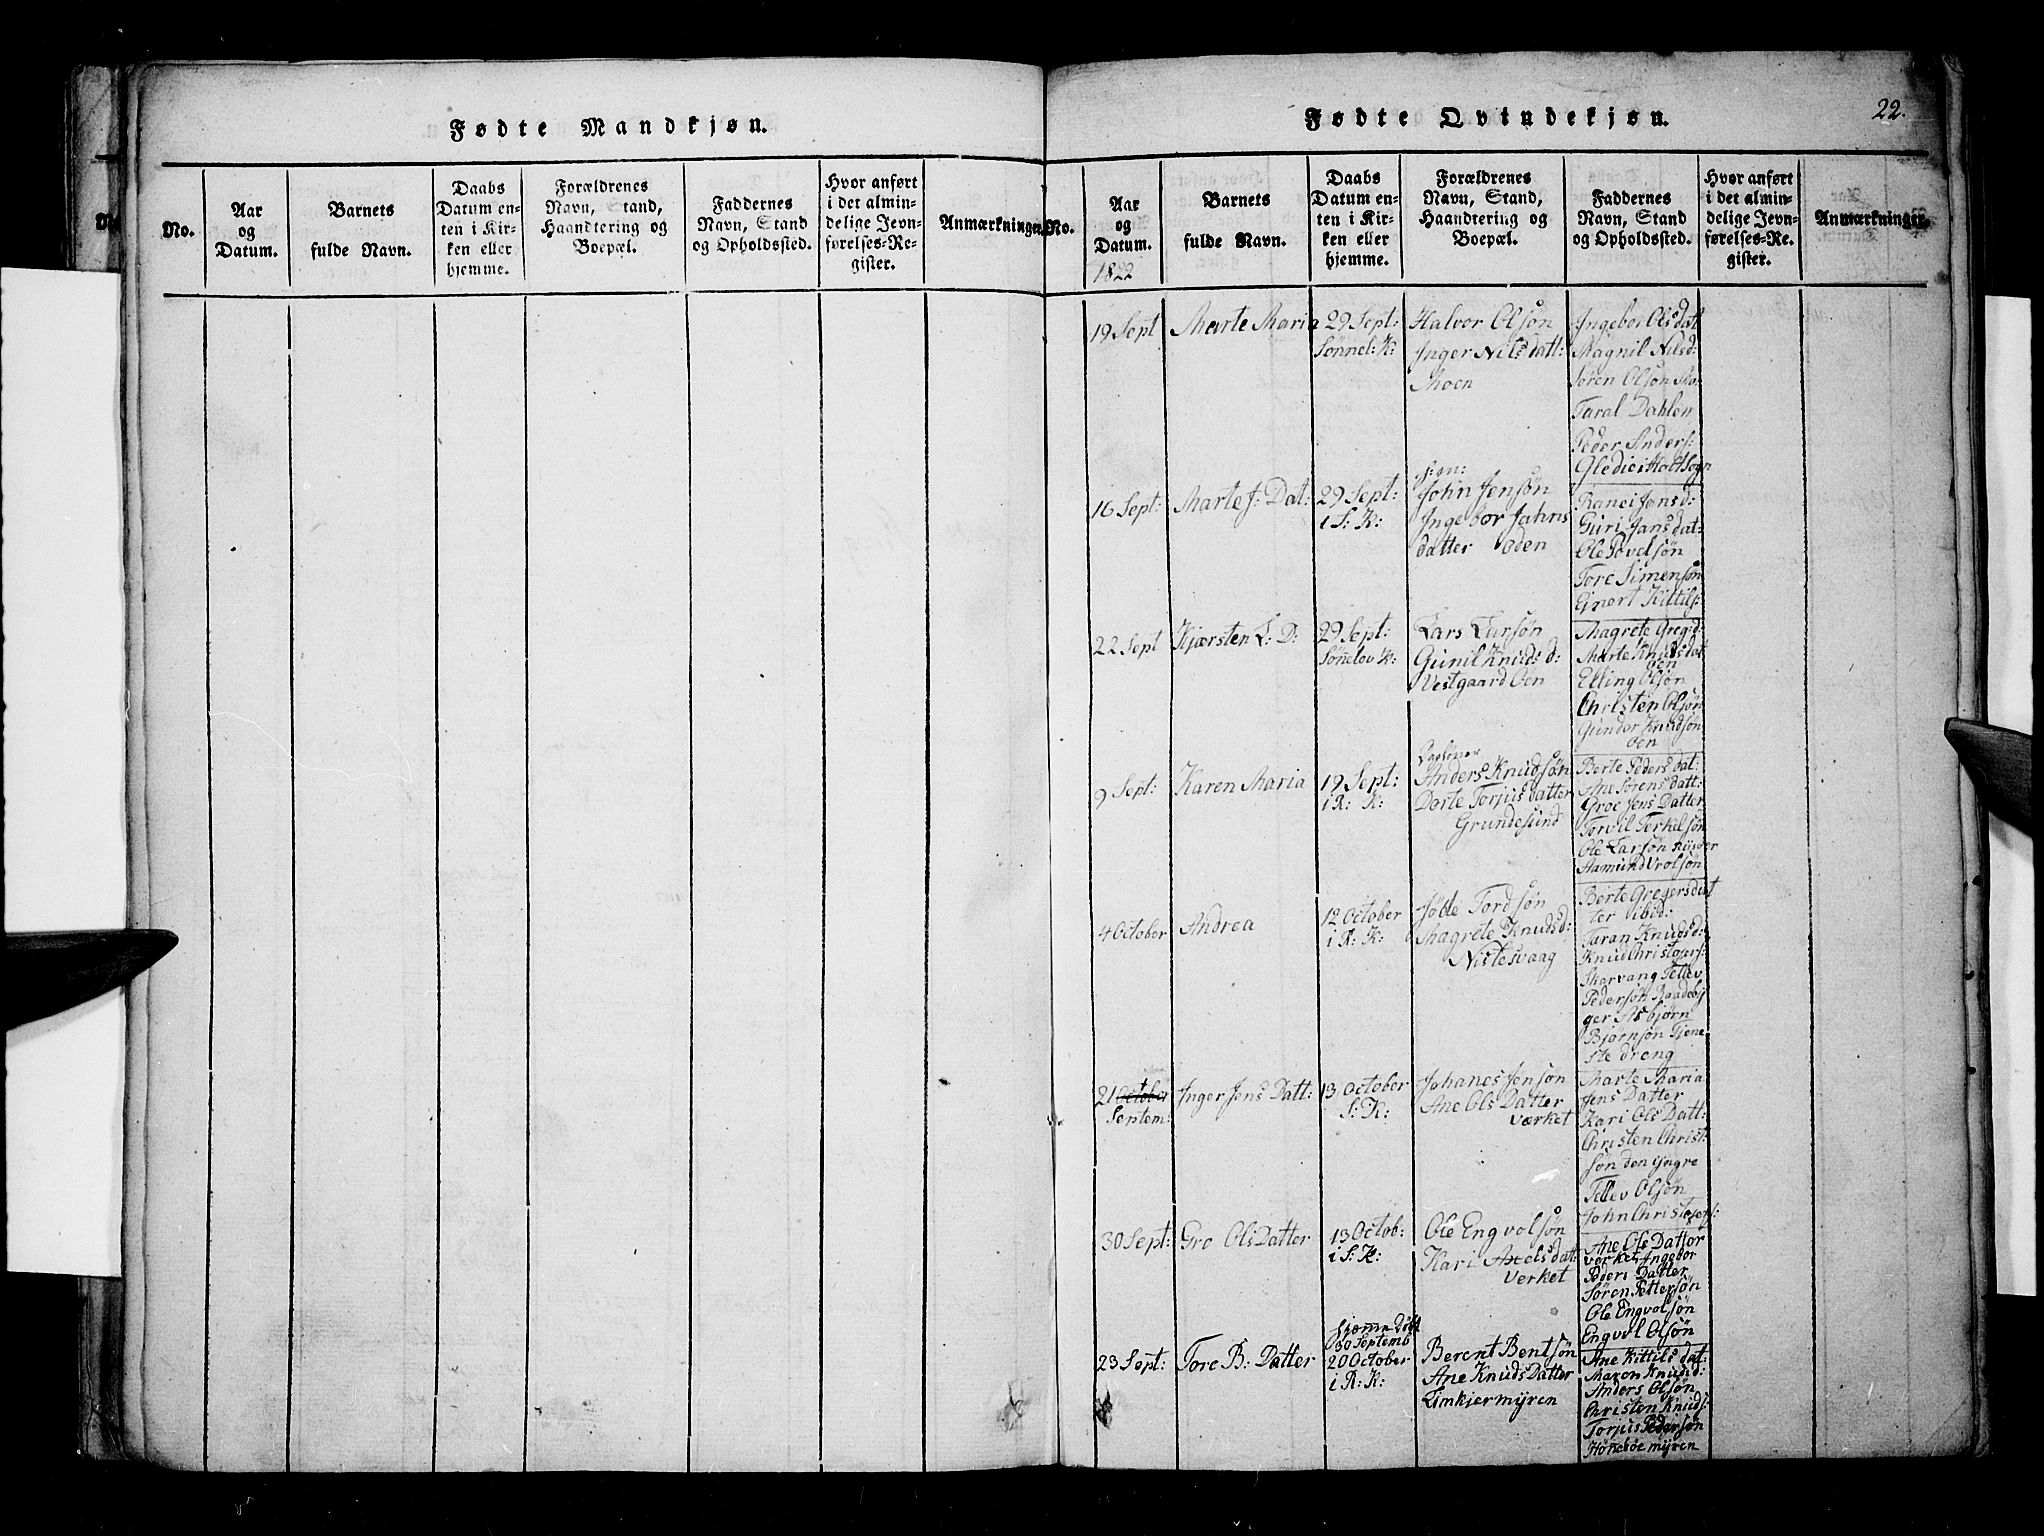 Fødte Mandkjøn.
No.
Aar
og
Datum.
Barnets
fulde Navn.
Daabs
Datum en-
ten i Kir-
ken eller
hjemme.
Forældrenes
Navn, Stand,
Haandtering og
Boepæl.
Faddernes
Navn, Stand
og Opholdssted.
Hvor anført
i det almin-
delige Jevn-
førelses-Re-
gister.
Anmærkninger.
Fødte Qvindekjøn.
22.
No.
Aar
og
Datum.
1822
Barnets
fulde Navn.
Daabs
Datum en-
ten i Kir-
ken eller
hjemme.
Forældrenes
Navn, Stand,
Haandtering og
Boepæl.
Faddernes
Navn, Stand
og Opholdssted.
Hvor anført
i det almin-
delige Jevn-
førelses-Re-
gister.
Anmærkninger.
19 Sept
Marte Maria
29 Sept:
Sønnel: K:
Halvor Olsøn
Inger Nilsdatt:
Moen
Ingebor Olsdat
Magnil Nilsd:
Søren Olsøn
Taral Dahlen
Peder Anders:
Gledie i Holt Sogn
16 Sept:
Marte J: Dat:
29 Sept:
i S: K:
John Jensøn
Ingebor Jahns
datter oden
Ranei Jonsd:
Guri Jansdat:
Ole Povelsøn
Tore Simensøn
Ejnert Kittils:
22 Sept
Kjærsten L: D:
29 Sept:
Sønnelov K:
Lars Lursøn
Gunil Knuds d:
Vestgaard Oen
Magrete Greg:d:
Marte Knudsdat
oen
Elling Olsøn
Christen Olsøn
Gunder Knudsøn
oen
9 Sept:
Karen Maria
19 Sept:
i R: K:
Dagløner
Anders Knudsøn
Dorte Torjusdatter
Grundesund
Berte Pedersdat:
Ane Sørensdatt:
Groe Jens Datter
Torvil Terkelsøn
Ole Larsøn Riisøer
Aamund Vrolsøn
4 October
Andrea
12 October
i R: K:
Jølle Tordsøn
Magrete Knudsd:
Nistesvaag
Berte Gregersdat
ter ibid:
Taran Knudsd:
Knud Christofers:
Skorvang Tellev
Pedersøn Raadebÿ
ger Asbjørn
Bjørnsøn Tjene
ste dreng
21 October
Septem:
Inger Jens Datt:
13 October
S: K:
Johanes Jensøn
Ane Ols Datter
værket
Marte Maria
Jens Datter
Kari Ols Datt:
Christen Christ:
søn den ijngre
Tellev Olsøn
John Christofers:
30 Sept:
Gro Ols Datter
13 Octob:
i S: K:
Ole Engvolsøn
Kari Axelsdat:
Verket
Ane Ols Datsor
værket Ingebor
Peders Datter
Søren Pettersøn
Ole Engvolsøn
Engvol Olsøn
23 Sept:
Tore B: Datter
hjæme Døbt
30 Septemb
20 October
i R: K:
Berent Bentsøn
Ane Knuds Datter
Limkjermÿren
Ane Kittilsdat:
Maren Knusd:
Anders Olsøn
Christen Knuds:
Torjus Pedersøn
Hønebøe mÿren